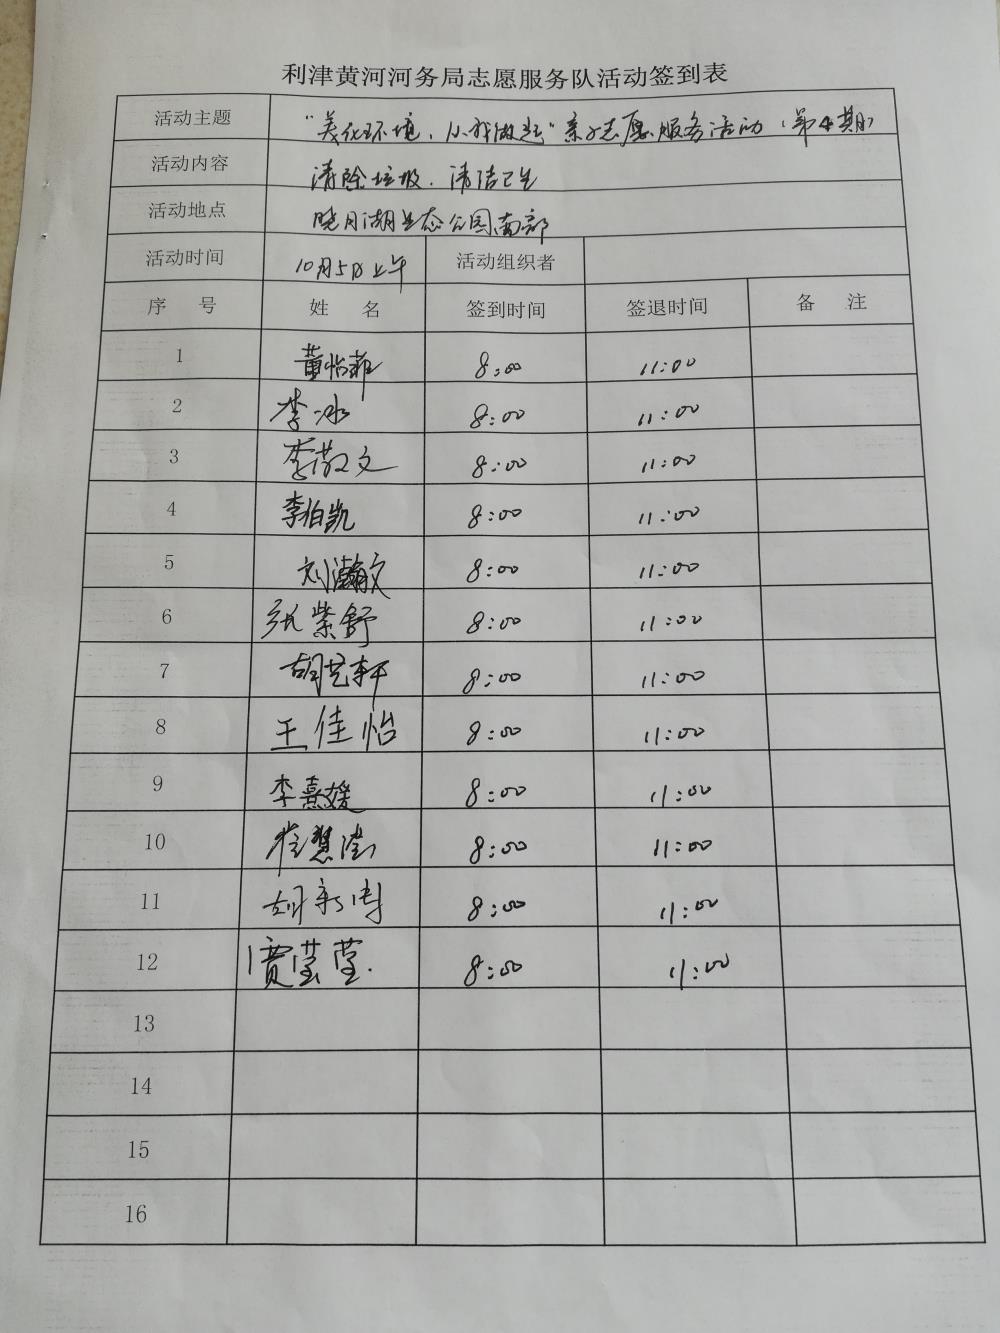 利津黄河河务局志愿服务队活动签到表
活动主题 “美化环境,从我做起”亲子志愿服务活动(第4期)
活动内容 清除垃圾、清洁卫生
活动地点 晓月湖生态公园南部
活动时间 10月5日上午 活动组织者
序 号 姓 名 签到时间 签退时间 备 注
1 黄怡菲 8:00 11:00
2 李冰 8:00 11:00
3 李淑文 8:00 11:00
4 李柏凯 8:00 11:00
5 刘瀚文 8:00 11:00
6 张紫舒 8:00 11:00
7 胡艺轩 8:00 11:00
8 王佳怡 8:00 11:00
9 李熹媛 8:00 11:00
10 8:00 11:00
11 8:00 11:00
12 贾莹莹 8:00 11:00
13
14
15
16